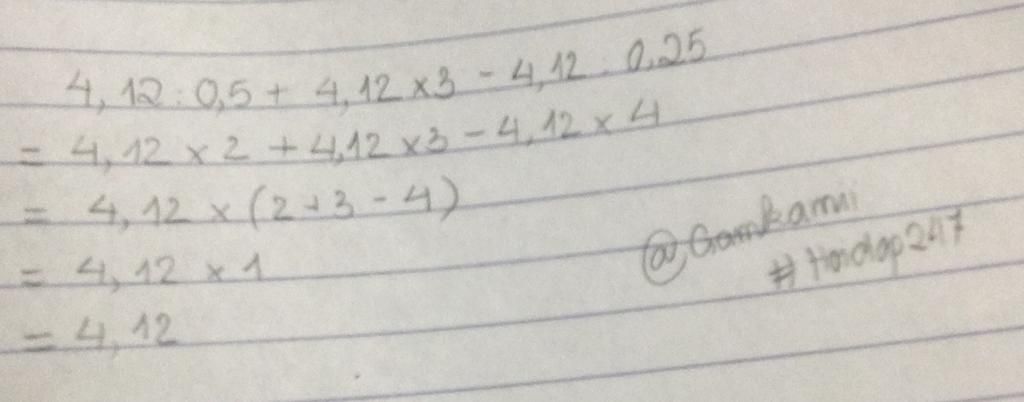 4,12 : 0,5 + 4,12 x 3 - 4,12 : 0,25
= 4,12 x 2 + 4,12 x 3 - 4,12 x 4
= 4,12 x (2 + 3 - 4)
= 4,12 x 1
= 4,12
@Gamkamii
#Hoidap247